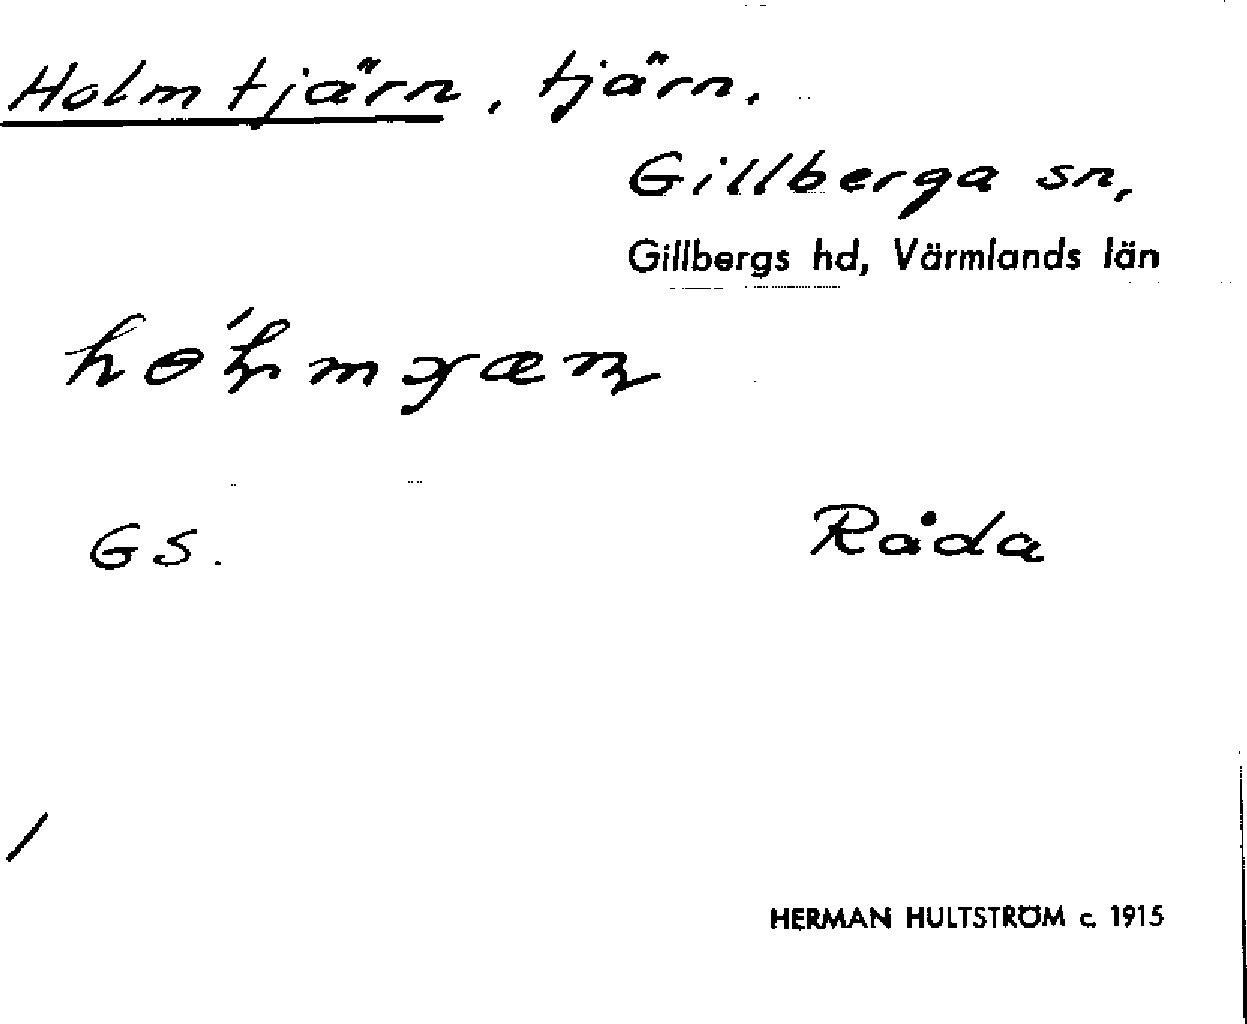 Holmtjärn, tjärn.
Gillberga sn,
Gillbergs hd, Värmlands län
GS. Råda
/
HERMAN HULTSTRÖM c. 1915